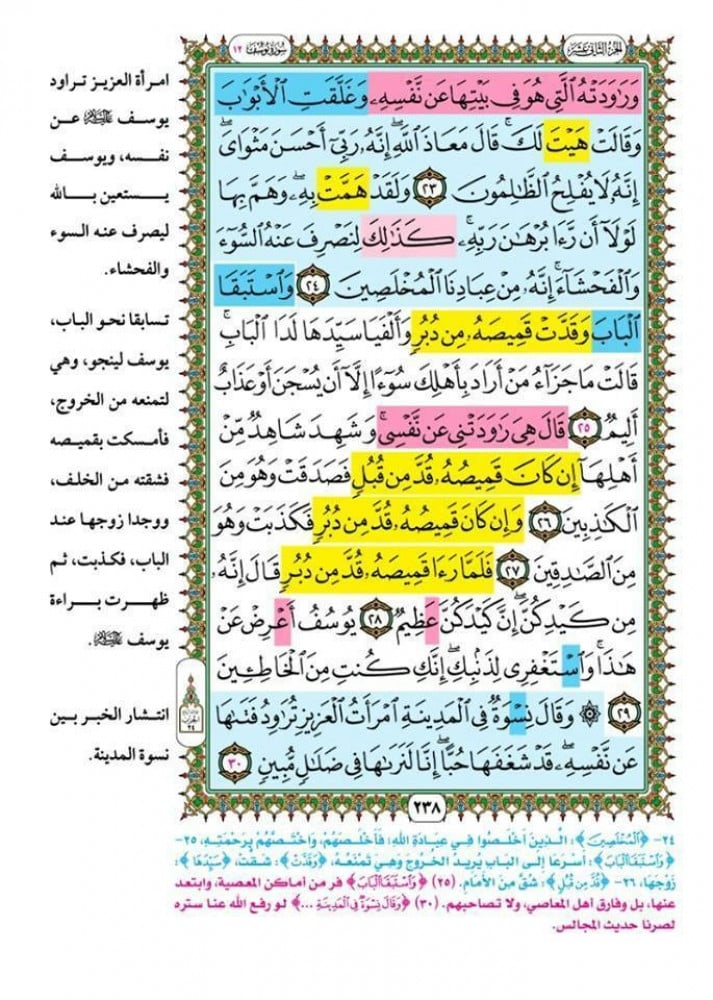 الجزء الثاني عشر
سورة يوسف ١٢
وَرَٰوَدَتْهُ ٱلَّتِى هُوَ فِى بَيْتِهَا عَن نَّفْسِهِۦ وَغَلَّقَتِ ٱلْأَبْوَٰبَ
وَقَالَتْ هَيْتَ لَكَ ۚ قَالَ مَعَاذَ ٱللَّهِ ۖ إِنَّهُۥ رَبِّىٓ أَحْسَنَ مَثْوَاىَ ۖ
إِنَّهُۥ لَا يُفْلِحُ ٱلظَّٰلِمُونَ ٢٣ وَلَقَدْ هَمَّتْ بِهِۦ ۖ وَهَمَّ بِهَا
لَوْلَآ أَن رَّءَا بُرْهَٰنَ رَبِّهِۦ ۚ كَذَٰلِكَ لِنَصْرِفَ عَنْهُ ٱلسُّوٓءَ
وَٱلْفَحْشَآءَ ۚ إِنَّهُۥ مِنْ عِبَادِنَا ٱلْمُخْلَصِينَ ٢٤ وَٱسْتَبَقَا
ٱلْبَابَ وَقَدَّتْ قَمِيصَهُۥ مِن دُبُرٍ وَأَلْفَيَا سَيِّدَهَا لَدَا ٱلْبَابِ ۚ
قَالَتْ مَا جَزَآءُ مَنْ أَرَادَ بِأَهْلِكَ سُوٓءًا إِلَّآ أَن يُسْجَنَ أَوْ عَذَابٌ
أَلِيمٌ ٢٥ قَالَ هِىَ رَٰوَدَتْنِى عَن نَّفْسِى ۚ وَشَهِدَ شَاهِدٌ مِّنْ
أَهْلِهَآ إِن كَانَ قَمِيصُهُۥ قُدَّ مِن قُبُلٍ فَصَدَقَتْ وَهُوَ مِنَ
ٱلْكَٰذِبِينَ ٢٦ وَإِن كَانَ قَمِيصُهُۥ قُدَّ مِن دُبُرٍ فَكَذَبَتْ وَهُوَ
مِنَ ٱلصَّٰدِقِينَ ٢٧ فَلَمَّا رَءَا قَمِيصَهُۥ قُدَّ مِن دُبُرٍ قَالَ إِنَّهُۥ
مِن كَيْدِكُنَّ ۖ إِنَّ كَيْدَكُنَّ عَظِيمٌ ٢٨ يُوسُفُ أَعْرِضْ عَنْ
هَٰذَا ۚ وَٱسْتَغْفِرِى لِذَنۢبِكِ ۖ إِنَّكِ كُنتِ مِنَ ٱلْخَاطِـِٔينَ
٢٩ ۞ وَقَالَ نِسْوَةٌ فِى ٱلْمَدِينَةِ ٱمْرَأَتُ ٱلْعَزِيزِ تُرَٰوِدُ فَتَىٰهَا
عَن نَّفْسِهِۦ ۖ قَدْ شَغَفَهَا حُبًّا ۖ إِنَّا لَنَرَىٰهَا فِى ضَلَٰلٍ مُّبِينٍ ٣٠
٢٣٨
امرأة العزيز تراود
يوسف عليه السلام عن
نفسه، ويوسف
يستعين بالله
ليصرف عنه السوء
والفحشاء.
تسابقا نحو الباب،
يوسف لينجو، وهي
لتمنعه من الخروج،
فأمسكت بقميصه
فشقته من الخلف،
ووجدا زوجها عند
الباب، فكذبت، ثم
ظهرت براءة
يوسف عليه السلام.
انتشار الخبر بين
نسوة المدينة.
٢٤- ﴿الْمُخْلَصِينَ﴾: الَّذِينَ أَخْلَصُوا فِي عِبَادَةِ اللهِ؛ فَأَخْلَصَهُمْ، وَاخْتَصَّهُمْ بِرَحْمَتِهِ، ٢٥-
﴿وَاسْتَبَقَا الْبَابَ﴾: أَسْرَعَا إِلَى الْبَابِ يُرِيدُ الْخُرُوجَ وَهِيَ تَمْنَعُهُ، ﴿وَقَدَّتْ﴾: شَقَّتْ، ﴿سَيِّدَهَا﴾:
زَوْجَهَا، ٢٦- ﴿قُدَّ مِن قُبُلٍ﴾: شُقَّ مِنَ الأَمَامِ. (٢٥) ﴿وَاسْتَبَقَا الْبَابَ﴾ فر من أماكن المعصية، وابتعد
عنها، بل وفارق أهل المعاصي، ولا تصاحبهم. (٣٠) ﴿وَقَالَ نِسْوَةٌ فِي الْمَدِينَةِ ...﴾ لو رفع الله عنا ستره
لصرنا حديث المجالس.